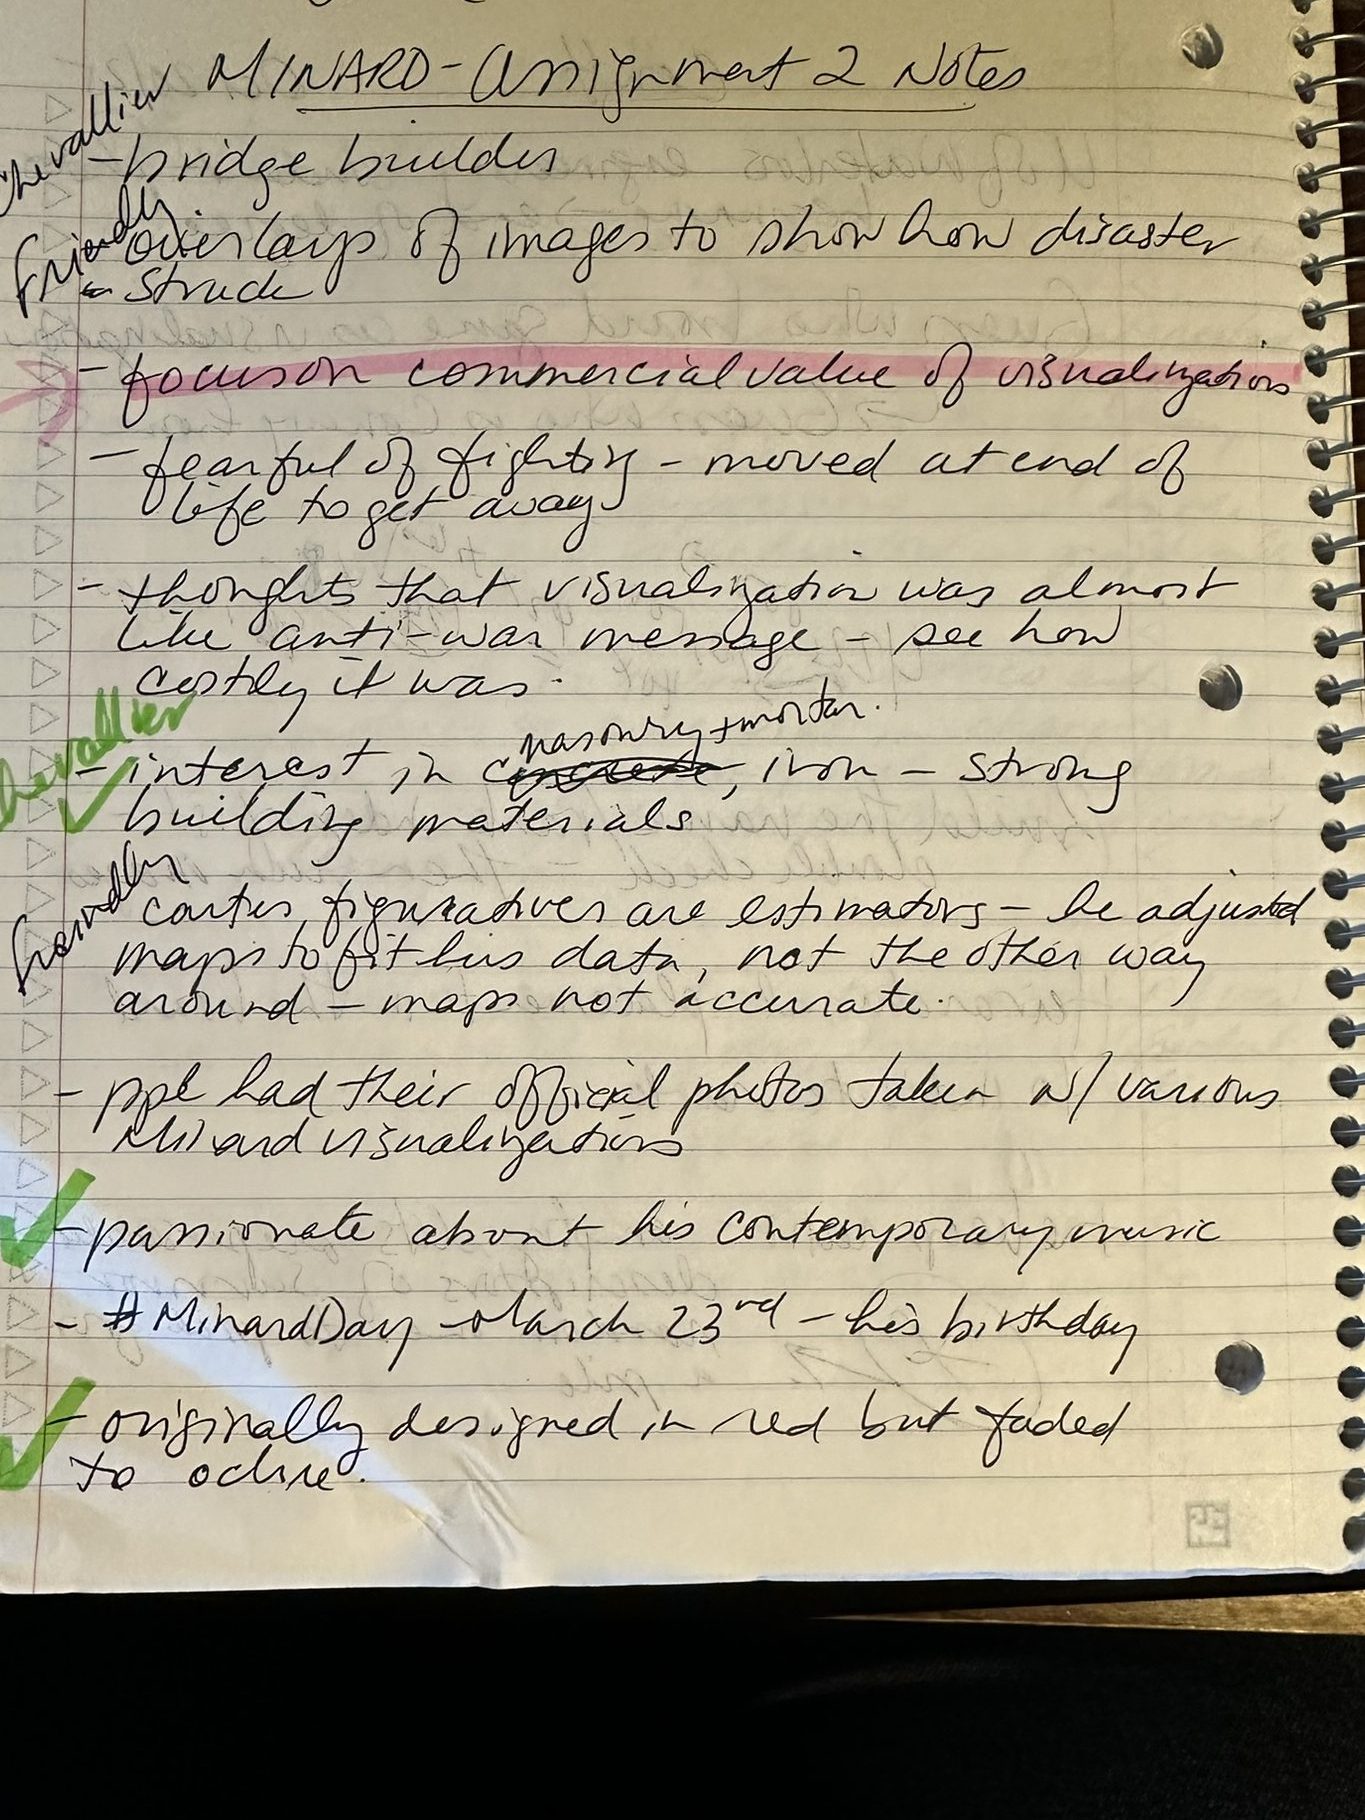 MINARD - Assignment 2 Notes
Chevallier
- bridge builder
Friendly
- overlays of images to show how disaster
struck
- focus on commercial value of visualizations
- fearful of fighting - moved at end of
life to get away
- thoughts that visualization was almost
like anti-war message - see how
costly it was.
Chevallier
masonry + mortar.
- interest in concrete, iron - strong
building materials
Friendly
cartes figuratives are estimators - he adjusted
maps to fit his data, not the other way
around - maps not accurate.
- ppl had their official photos taken w/ various
Minard visualizations
- passionate about his contemporary music
- #MinardDay - March 23rd - his birthday
- originally designed in red but faded
to ochre.